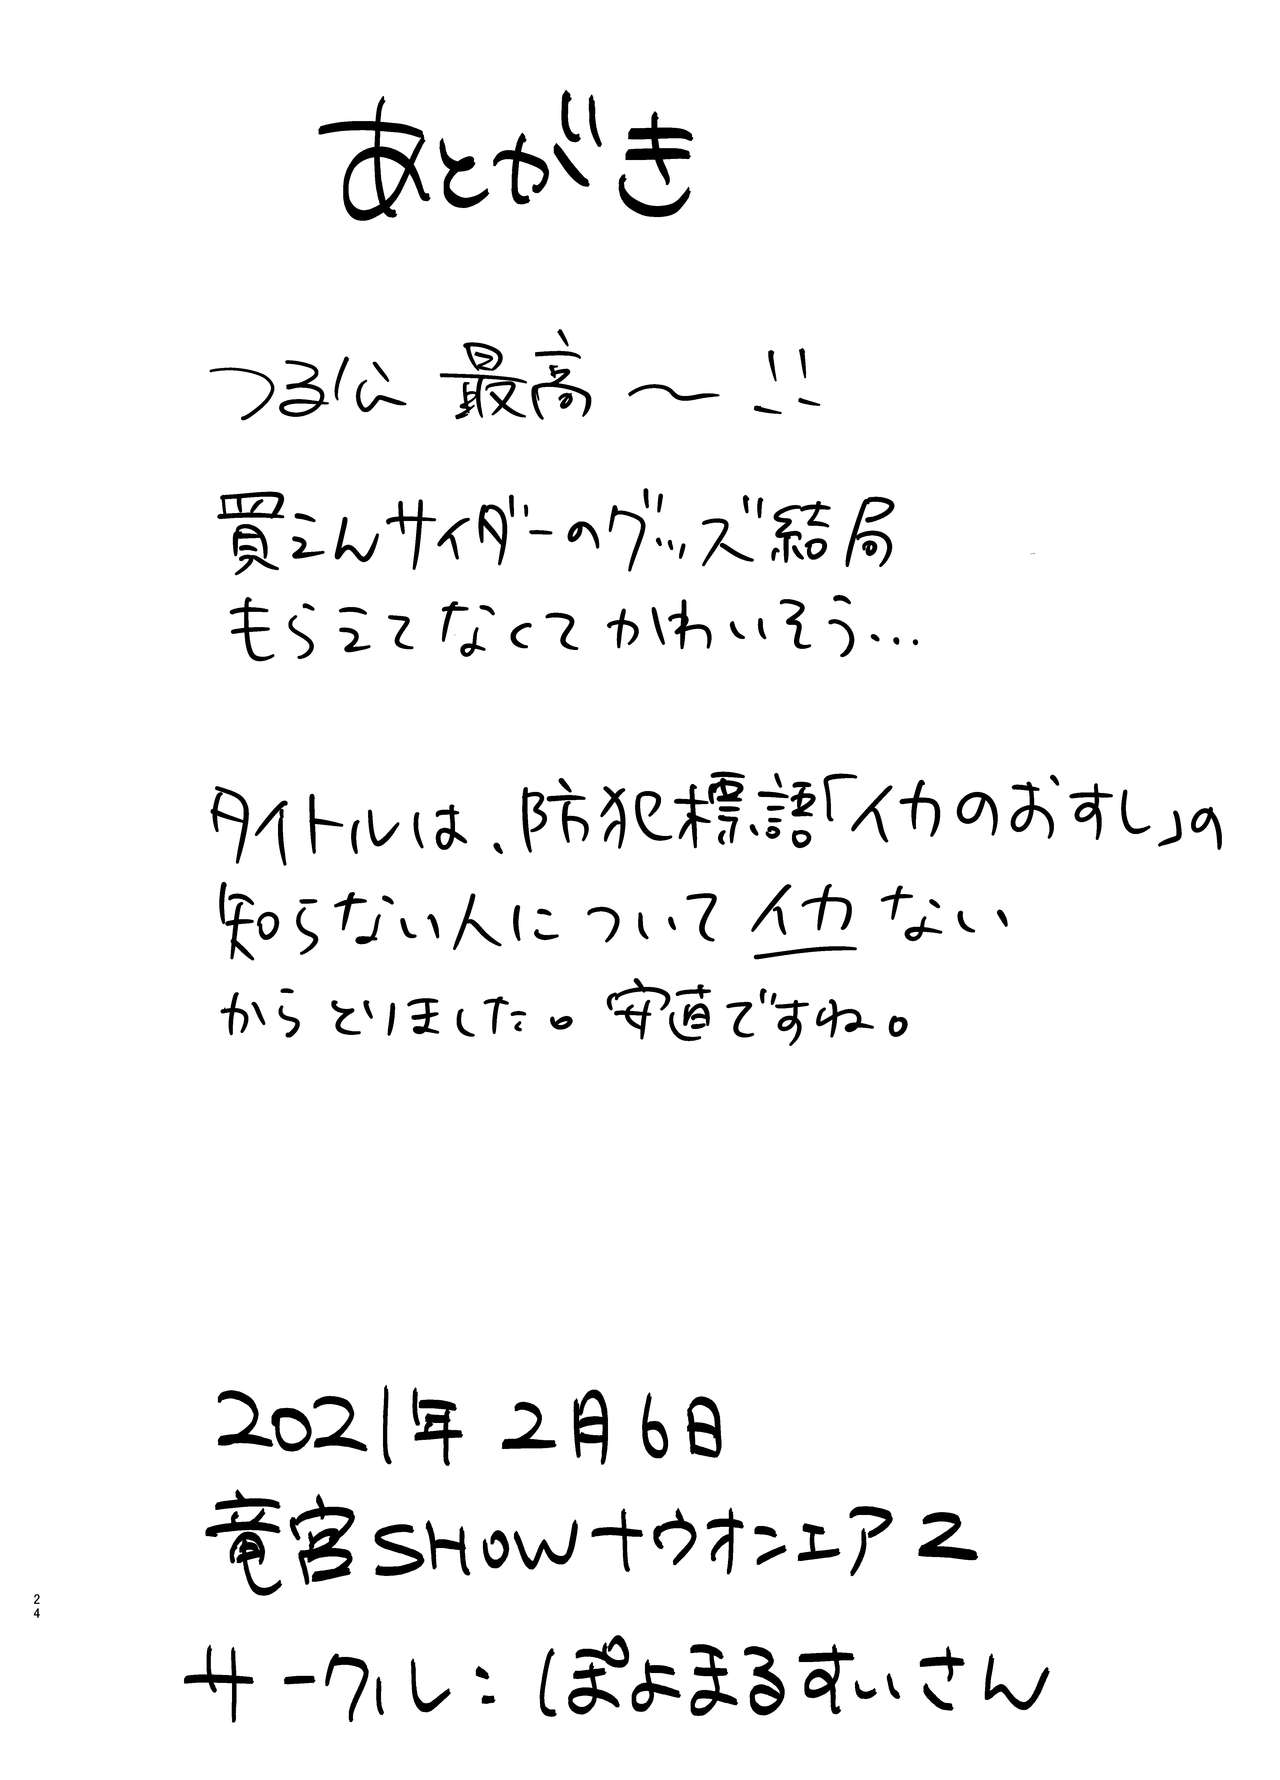 あとがき
つる公 最高〜!!
買えんサイダーのグッズ結局
もらえてなくてかわいそう…
タイトルは、防犯標語「イカのおすし」の
知らない人についてイカない
からとりました。安直ですね。
2021年 2月6日
竜宮SHOWナウオンエア2
サークル:ぽよまるすいさん
24